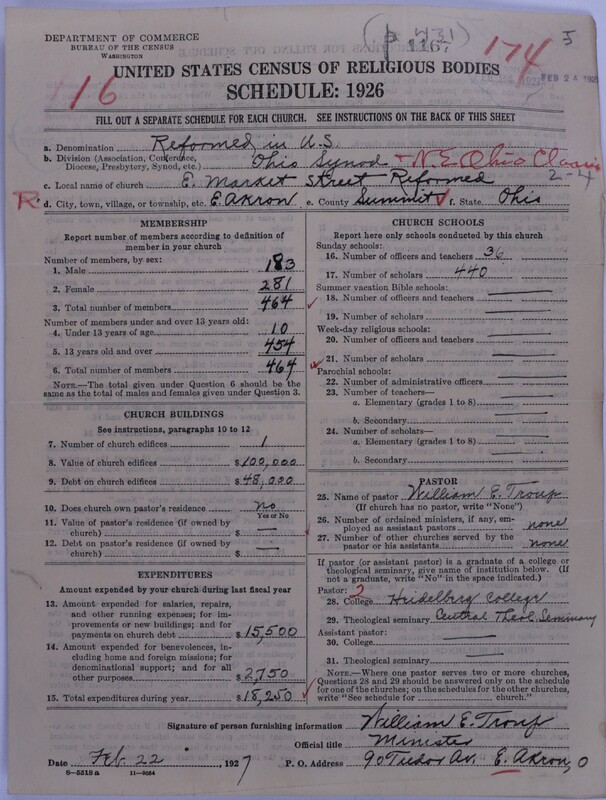 DEPARTMENT OF COMMERCE
BUREAU OF THE CENSUS
WASHINGTON
1167
174
5
16
UNITED STATES CENSUS OF RELIGIOUS BODIES
SCHEDULE: 1926
FILL OUT A SEPARATE SCHEDULE FOR EACH CHURCH. SEE INSTRUCTIONS ON THE BACK OF THIS SHEET
a. Denomination Reformed in U.S.
b. Division (Association, Conference, Diocese, Presbytery, Synod, etc.) Ohio Synod + N.E. Ohio Classis
2-4
c. Local name of church E. Market Street Reformed
R d. City, town, village, or township, etc. E Akron e. County Summit f. State Ohio
MEMBERSHIP
Report number of members according to definition of
member in your church
Number of members, by sex:
1. Male 183
2. Female 281
3. Total number of members 464
Number of members under and over 13 years old:
4. Under 13 years of age 10
5. 13 years old and over 454
6. Total number of members 464
NOTE.—The total given under Question 6 should be the
same as the total of males and females given under Question 3.
CHURCH BUILDINGS
See instructions, paragraphs 10 to 12
7. Number of church edifices 1
8. Value of church edifices $100,000
9. Debt on church edifices $48,000
10. Does church own pastor's residence No
Yes or No
11. Value of pastor's residence (if owned by
church) $ —
12. Debt on pastor's residence (if owned by
church) $ —
EXPENDITURES
Amount expended by your church during last fiscal year
13. Amount expended for salaries, repairs,
and other running expenses; for im-
provements or new buildings; and for
payments on church debt $15,500
14. Amount expended for benevolences, in-
cluding home and foreign missions; for
denominational support; and for all
other purposes $2,750
15. Total expenditures during year $18,250
CHURCH SCHOOLS
Report here only schools conducted by this church
Sunday schools:
16. Number of officers and teachers 36
17. Number of scholars 440
Summer vacation Bible schools:
18. Number of officers and teachers —
19. Number of scholars —
Week-day religious schools:
20. Number of officers and teachers —
21. Number of scholars —
Parochial schools:
22. Number of administrative officers —
23. Number of teachers—
a. Elementary (grades 1 to 8) —
b. Secondary —
24. Number of scholars—
a. Elementary (grades 1 to 8) —
b. Secondary —
PASTOR
25. Name of pastor William E. Troup
(If church has no pastor, write "None")
26. Number of ordained ministers, if any, em-
ployed as assistant pastors none
27. Number of other churches served by the
pastor or his assistants none
If pastor (or assistant pastor) is a graduate of a college or
theological seminary, give name of institution below. (If
not a graduate, write "No" in the space indicated.)
Pastor: 2
28. College Heidelberg College
29. Theological seminary Central Theol. Seminary
Assistant pastor:
30. College —
31. Theological seminary —
NOTE.—Where one pastor serves two or more churches,
Questions 28 and 29 should be answered only on the schedule
for one of the churches; on the schedules for the other churches,
write "See schedule for church."
Signature of person furnishing information William E. Troup
Official title Minister
Date Feb. 22, 1927 P. O. Address 90 Tudor Av. E. Akron, O
8—5518 a 11—9084